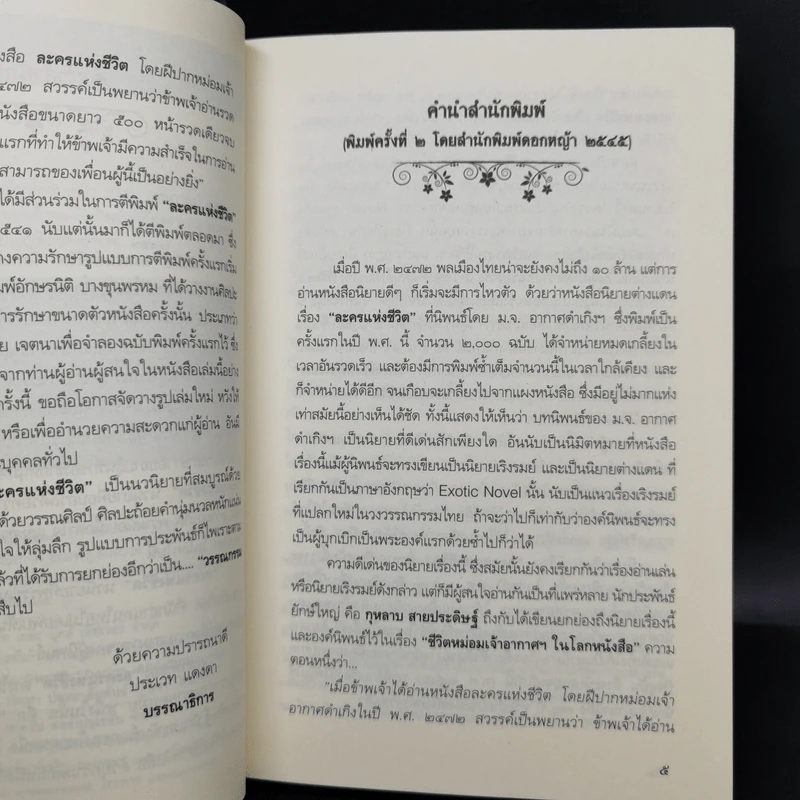 งสือ ละครแห่งชีวิต โดยฝีปากหม่อมเจ้า
๔๗๒ สวรรค์เป็นพยานว่าข้าพเจ้าอ่านรวด
นังสือขนาดยาว ๕๐๐ หน้ารวดเดียวจบ
แรกที่ทำให้ข้าพเจ้ามีความสำเร็จในการอ่าน
สามารถของเพื่อนผู้นี้เป็นอย่างยิ่ง"
ได้มีส่วนร่วมในการตีพิมพ์ "ละครแห่งชีวิต"
๕๔๑ นับแต่นั้นมาก็ได้ตีพิมพ์ตลอดมา ซึ่ง
างความรักษารูปแบบการตีพิมพ์ครั้งแรกเริ่ม
พ์อักษรนิติ บางขุนพรหม ที่ได้วางงานศิลปะ
ารรักษาขนาดตัวหนังสือครั้งนั้น ประเภทว่า
ย เจตนาเพื่อจำลองฉบับพิมพ์ครั้งแรกไว้ ซึ่ง
จากท่านผู้อ่านผู้สนใจในหนังสือเล่มนี้อย่าง
รั้งนี้ ขอถือโอกาสจัดวางรูปเล่มใหม่ หวังให้
หรือเพื่ออำนวยความสะดวกแก่ผู้อ่าน อันมี
บุคคลทั่วไป
ะครแห่งชีวิต" เป็นนวนิยายที่สมบูรณ์ด้วย
ด้วยวรรณศิลป์ ศิลปะถ้อยคำนุ่มนวลหนักแน่น
ใจให้ลุ่มลึก รูปแบบการประพันธ์ก็ไพเราะตาม
ล้วที่ได้รับการยกย่องอีกว่าเป็น.... "วรรณกรรม
สืบไป
ด้วยความปรารถนาดี
ประเวท แดงดา
บรรณาธิการ
คำนำสำนักพิมพ์
(พิมพ์ครั้งที่ ๒ โดยสำนักพิมพ์ดอกหญ้า ๒๕๔๕)
เมื่อปี พ.ศ. ๒๔๗๒ พลเมืองไทยน่าจะยังคงไม่ถึง ๑๐ ล้าน แต่การ
อ่านหนังสือนิยายดีๆ ก็เริ่มจะมีการไหวตัว ด้วยว่าหนังสือนิยายต่างแดน
เรื่อง "ละครแห่งชีวิต" ที่นิพนธ์โดย ม.จ. อากาศดำเกิงฯ ซึ่งพิมพ์เป็น
ครั้งแรกในปี พ.ศ. นี้ จำนวน ๒,๐๐๐ ฉบับ ได้จำหน่ายหมดเกลี้ยงใน
เวลาอันรวดเร็ว และต้องมีการพิมพ์ซ้ำเต็มจำนวนนี้ในเวลาใกล้เคียง และ
ก็จำหน่ายได้ดีอีก จนเกือบจะเกลี้ยงไปจากแผงหนังสือ ซึ่งมีอยู่ไม่มากแห่ง
เท่าสมัยนี้อย่างเห็นได้ชัด ทั้งนี้แสดงให้เห็นว่า บทนิพนธ์ของ ม.จ. อากาศ
ดำเกิงฯ เป็นนิยายที่ดีเด่นสักเพียงใด อันนับเป็นนิมิตหมายที่หนังสือ
เรื่องนี้แม้ผู้นิพนธ์จะทรงเขียนเป็นนิยายเริงรมย์ และเป็นนิยายต่างแดน ที่
เรียกกันเป็นภาษาอังกฤษว่า Exotic Novel นั้น นับเป็นแนวเรื่องเริงรมย์
ที่แปลกใหม่ในวงวรรณกรรมไทย ถ้าจะว่าไปก็เท่ากับว่าองค์นิพนธ์จะทรง
เป็นผู้บุกเบิกเป็นพระองค์แรกด้วยซ้ำไปก็ว่าได้
ความดีเด่นของนิยายเรื่องนี้ ซึ่งสมัยนั้นยังคงเรียกกันว่าเรื่องอ่านเล่น
หรือนิยายเริงรมย์ดังกล่าว แต่ก็มีผู้สนใจอ่านกันเป็นที่แพร่หลาย นักประพันธ์
ยักษ์ใหญ่ คือ กุหลาบ สายประดิษฐ์ ถึงกับได้เขียนยกย่องถึงนิยายเรื่องนี้
และองค์นิพนธ์ไว้ในเรื่อง "ชีวิตหม่อมเจ้าอากาศฯ ในโลกหนังสือ" ความ
ตอนหนึ่งว่า...
"เมื่อข้าพเจ้าได้อ่านหนังสือละครแห่งชีวิต โดยฝีปากหม่อมเจ้า
อากาศดำเกิงในปี พ.ศ. ๒๔๗๒ สวรรค์เป็นพยานว่า ข้าพเจ้าได้อ่าน
๕